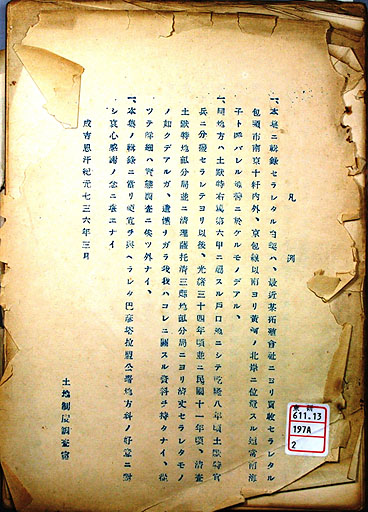 凡例
一、本集ニ輯錄セラレタル白契ハ、最近茶拓殖會社ニヨリ買收セラレタル
包頭市南京十軒內外、京包線以南ヨリ黃河ノ北岸ニ位置スル通常南海
子ト呼バレル地帶ニ於ケルモノデアル、
一、同地方ハ土獸特右翼第六甲ニ屬スル戶口地ニシテ乾隆八年頃土獸特官
兵ニ分撥セラレテヨリ以後、光緒三十四年頃並ニ民國十一年頃、淸查
土獸特地畝分局並ニ淸理薩托淸三縣地畝分局ニヨリ淸丈セラレタモノ
ノ如クデアルガ、遺憾ナガラ現我ハコレニ關スル資料ヲ持タナイ、從
ツテ詳細ハ實態調查ニ俟ツ外ナイ、
一、本集ノ輯錄ニ當リ便宜ヲ與ヘラレタ巴彥塔拉盟公署地方科ノ好意ニ對
シ衷心感謝ノ念ニ堪エナイ
成吉思汗紀元七三六年三月
土地制度調查室
611.13
197A
2